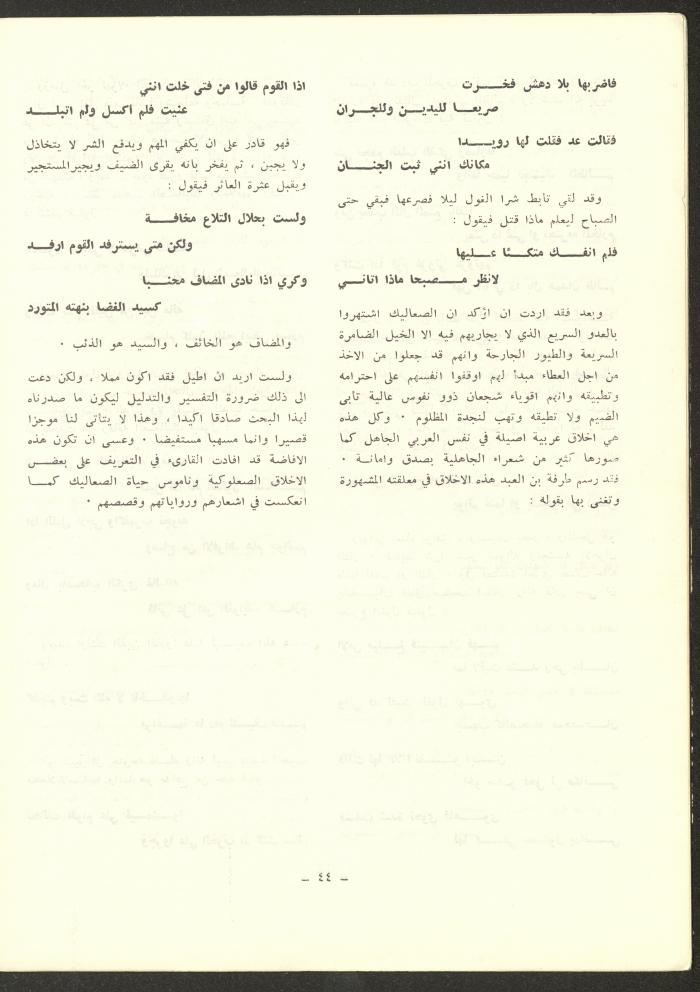 فاضربها بلا دهش فخـــرت
صريعـا لليديـن وللجـران
فقالت عد فقلت لها رويـــدا
مكانك انني ثبت الجنـــان
وقد لقي تابط شرا الغول ليلا فصرعها فبقي حتى
الصباح ليعلم ماذا قتل فيقول :
فلم انفــك متكـئا علـيها
لانظر مــصبحا ماذا اتانـي
وبعد فقد اردت ان اؤكد ان الصعاليك اشتهروا
بالعدو السريع الذي لا يجاريهم فيه الا الخيل الضامرة
السريعة والطيور الجارحة وانهم قد جعلوا من الاخذ
من اجل العطاء مبدأ لهم اوقفوا انفسهم على احترامه
وتطبيقه وانهم اقوياء شجعان ذوو نفوس عالية تأبى
الضيم ولا تطيقه وتهب لنجدة المظلوم ٠ وكل هذه
هي اخلاق عربية اصيلة في نفس العربي الجاهل كما
صورها كثير من شعراء الجاهلية بصدق وامانـة ٠
فقد رسم طرفة بن العبد هذه الاخلاق في معلقته المشهورة
وتغنى بها بقوله :
اذا القوم قالوا من فتى خلت انني
عنيت فلم أكسل ولم اتبلــد
فهو قادر على ان يكفي المهم ويدفع الشر لا يتخاذل
ولا يجبن ، ثم يفخر بانه يقرى الضيف ويجيرالمستجير
ويقبل عثرة العاثر فيقول :
ولست بحلال التلاع مخافــة
ولكن متى يسترفد القوم ارفـد
وكري اذا نادى المضاف محنبـا
كسيد الغضا بنهته المتورد
والمضاف هو الخائف ، والسيد هو الذئب ٠
ولست اريد ان اطيل فقد اكون مملا ، ولكن دعت
الى ذلك ضرورة التفسير والتدليل ليكون ما صدرناه
لهذا البحث صادقا اكيدا ، وهذا لا يتأتى لنا موجزا
قصيرا وانما مسهبا مستفيضا ٠ وعسى ان تكون هذه
الافاضة قد افادت القارىء في التعريف على بعضـر
الاخلاق الصعلوكية وناموس حياة الصعاليك كمــا
انعكست في اشعارهم ورواياتهم وقصصهم ٠
– ٤٤ –